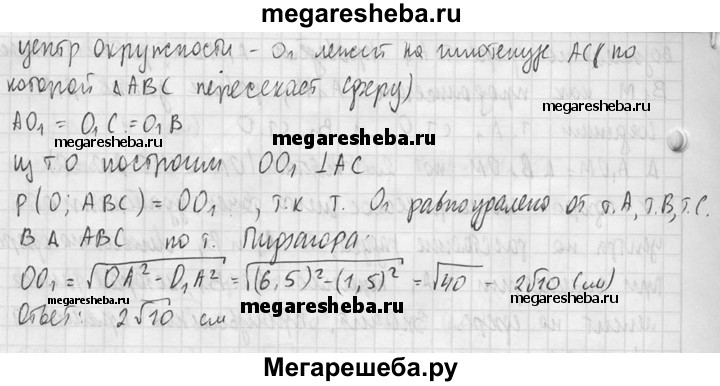 megaresheba.ru
центр окружности - O₁ лежит на гипотенузе AC (по
которой △ABC пересекает сферу)
AO₁ = O₁C = O₁B
megaresheba.ru
megaresheba.ru
megaresheba.ru
из т. O построим OO₁ ⊥ AC
ρ(O; ABC) = OO₁ , т.к т. O₁ равноудалено от т.A, т.B, т.C.
В △ ABC по т. Пифагора:
OO₁ = √OA² - O₁A² = √(6,5)² - (1,5)² = √40 = 2√10 (см)
megaresheba.ru
megaresheba.ru
Ответ: 2√10 см
megaresheba.ru
Мегарешеба.ру